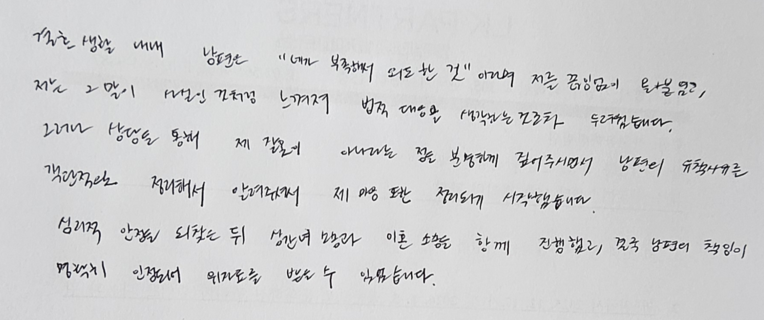 결혼 생활 내내 남편은 "네가 부족해서 외도한 것" 이라며 저를 끊임없이 몰아붙였고,
저는 그 말이 사실인 것처럼 느껴져 법적 대응을 생각하는 것조차 두려웠습니다.
그러나 상담을 통해 제 잘못이 아니라는 점을 분명하게 짚어주시면서 남편의 유책사유를
객관적으로 정리해서 알려주셔서 제 마음 또한 정리되기 시작했습니다.
심리적 안정을 되찾은 뒤 상간녀 소송과 이혼 소송을 함께 진행했고, 결국 남편의 책임이
명확히 인정되어 위자료를 받을 수 있었습니다.